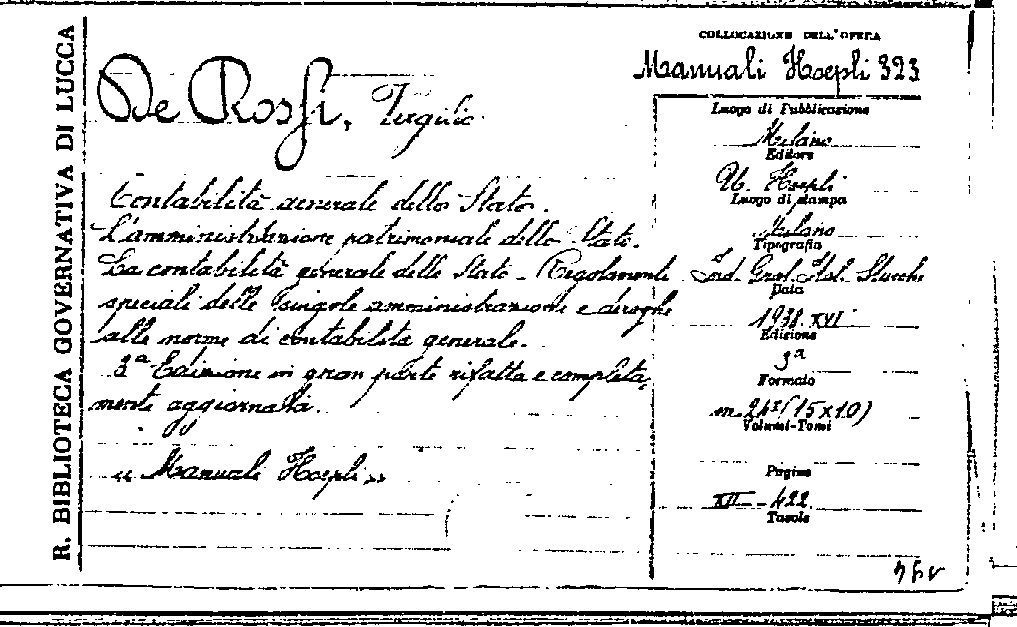 R. BIBLIOTECA GOVERNATIVA DI LUCCA
COLLOCAZIONE DELL'OPERA
Manuali Hoepli 323
De Rossi,
Contabilità generale dello Stato.
L'amministrazione patrimoniale dello Stato.
La contabilità generale dello Stato - Regolamente
speciali delle singole amministrazione e deroghe
alle norme di contabilità generale.
3ª Edizione in gran parte rifatta e completa
mente aggiornata.
« Manuali Hoepli »
Luogo di Pubblicazione
Milano
Editore
U. Hoepli
Luogo di stampa
Milano
Tipografia
Ind. Graf. Ital. Stucchi
Data
1938. XVI
Edizione
3ª
Formato
in 24º (15x10)
Volumi-Tomi
Pagine
XII - 422
Tavole